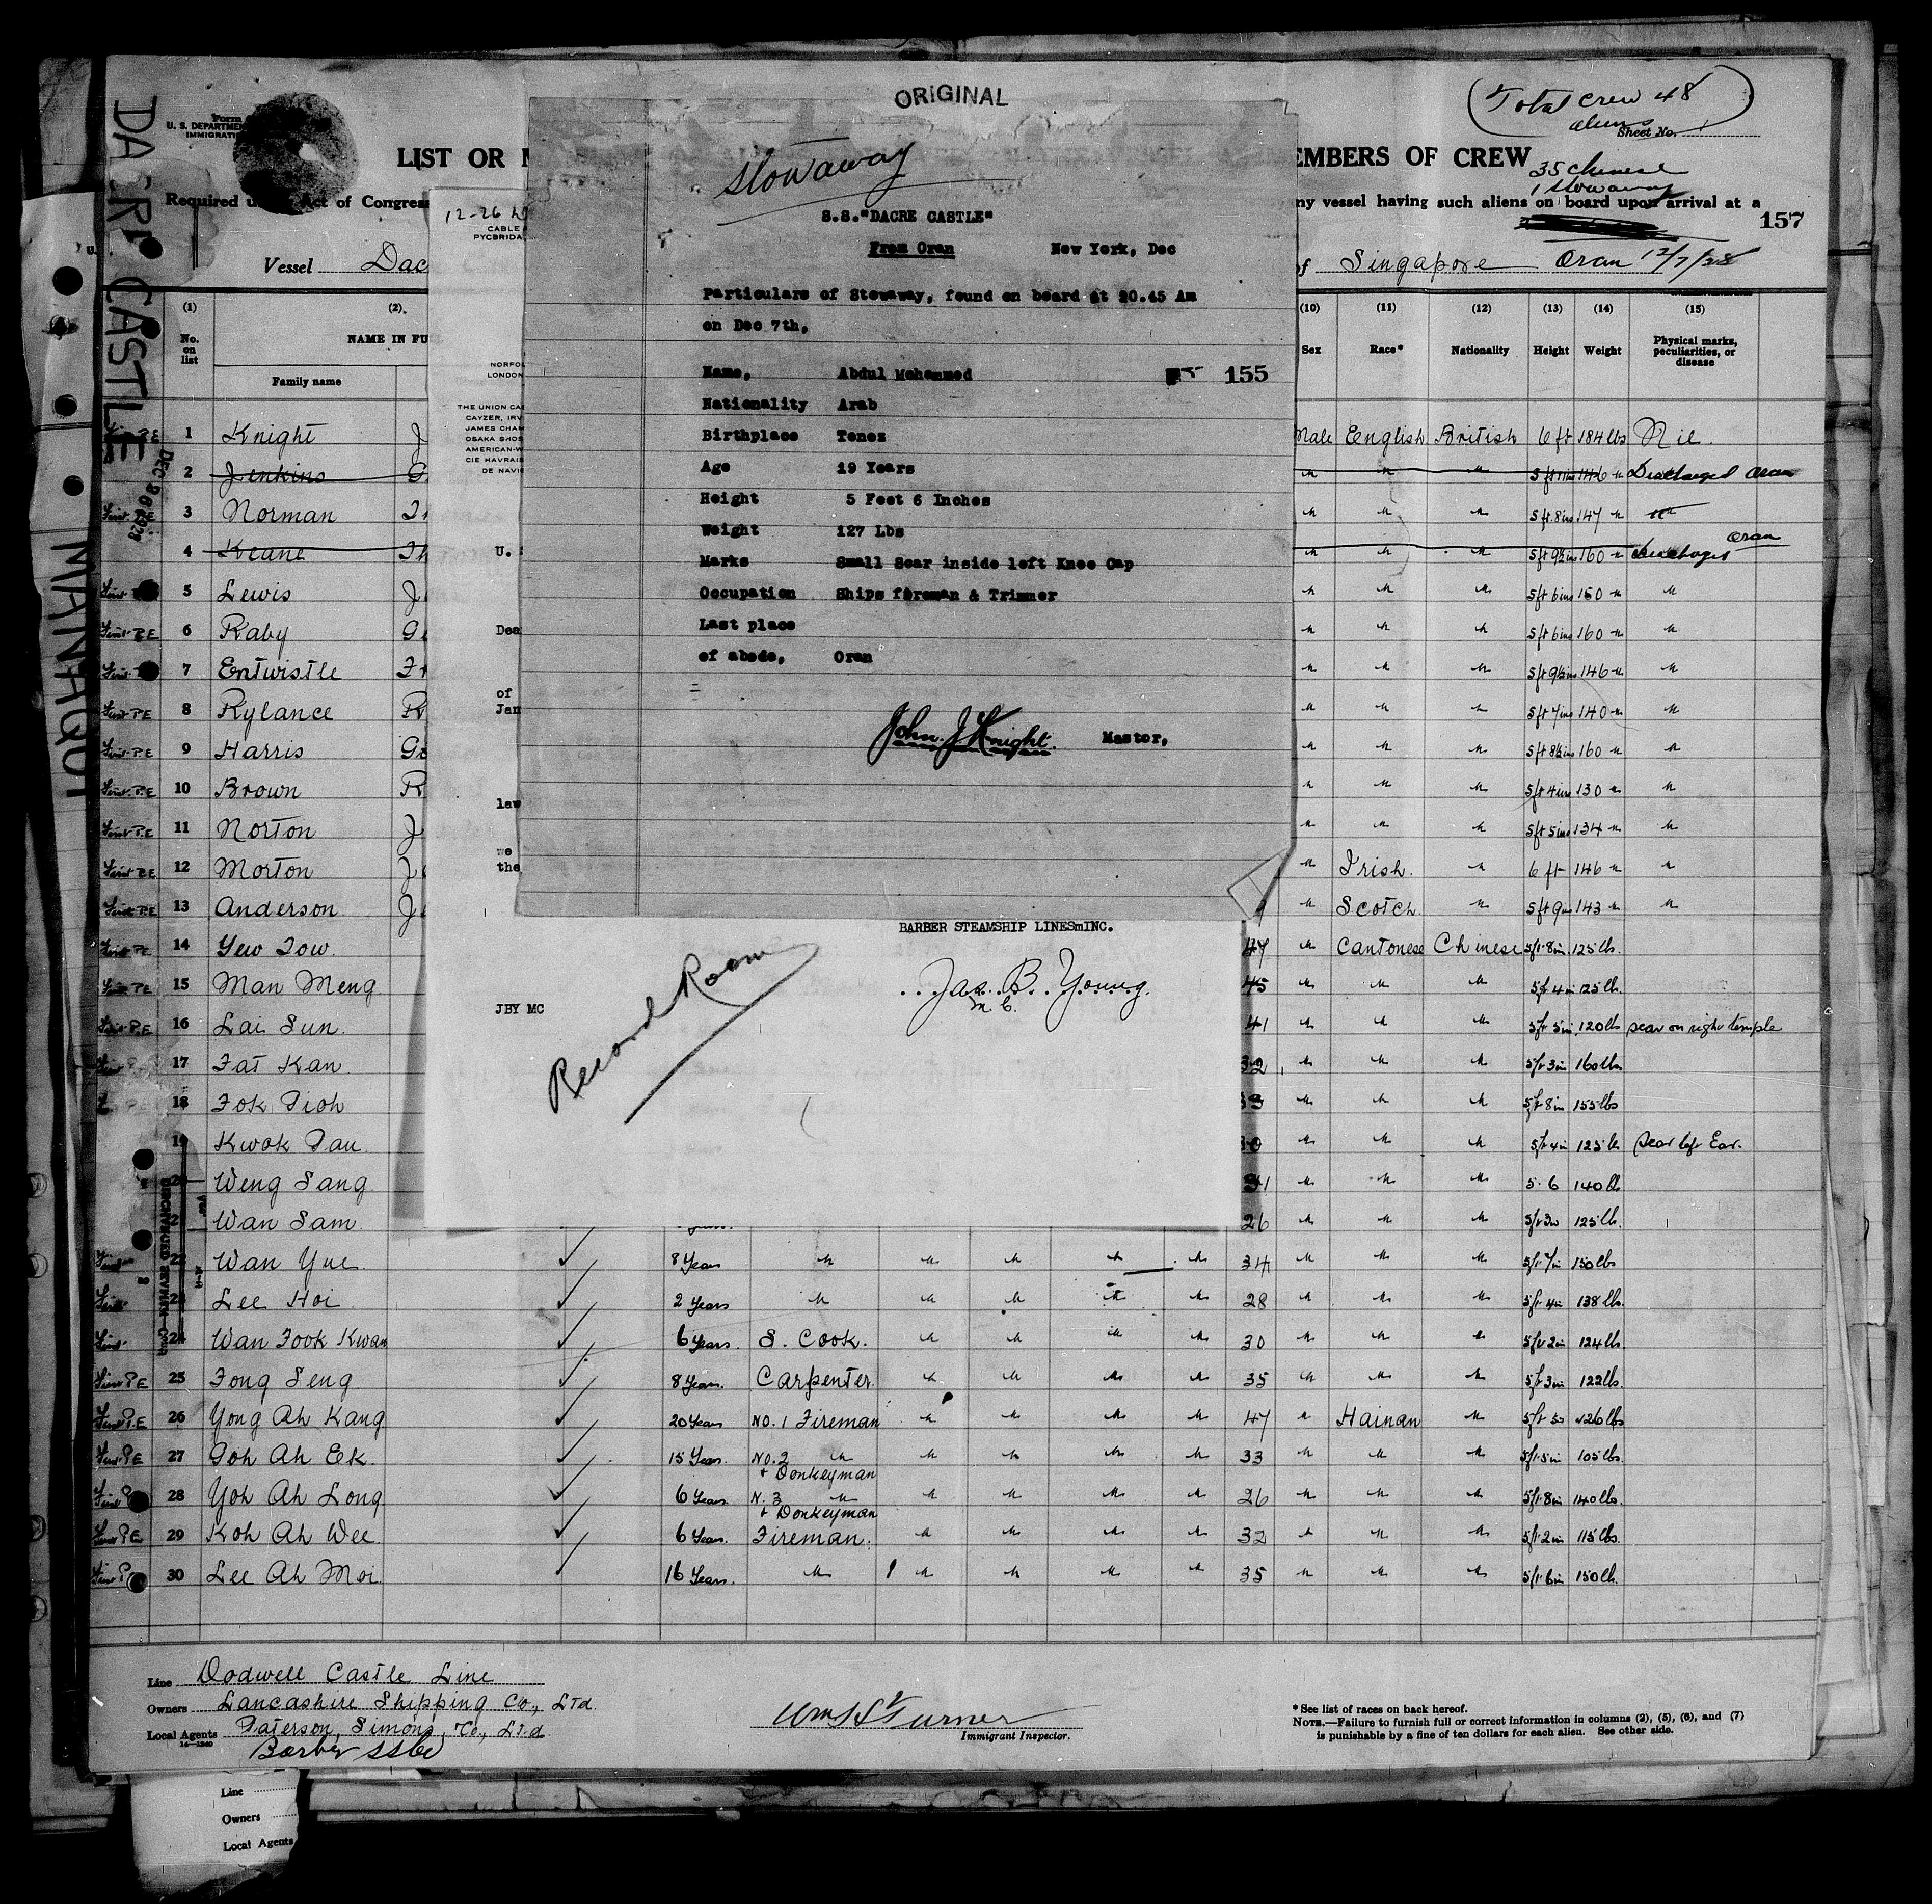 ORIGINAL
(Total crew 48
aliens
Sheet No. 1
Form
U. S. DEPARTMEN
IMMIGRATI
LIST OR M
EMBERS OF CREW
35 Chinese
1 Stowaway
Required u Act of Congres
ny vessel having such aliens on board upon arrival at a
157
Vessel Dac
of Singapore Oran 12/7/28
DACRE CASTLE
MANHQUT
DEC 26 1928
Stowaway
S.S."DACRE CASTLE"
From Oran New York, Dec
Particulars of Stowaway, found on board at 20.45 Am
on Dec 7th,
155
Name, Abdul Mohammed
Nationality Arab
Birthplace Tenez
Age 19 Years
Height 5 Feet 6 Inches
Weight 127 Lbs
Marks Small Scar inside left Knee Cap
Occupation Ships fireman & Trimmer
Last place
of abode, Oran
John. J Knight. Master,
12-26
CABLE
PYCBRIDA
NORFOL
LONDON
THE UNION CA
CAYZER, IRV
JAMES CHAM
OSAKA SHOS
AMERICAN-W
CIE HAVRAIS
DE NAVI
U.
Dea
of
Jan
law
we
the
BARBER STEAMSHIP LINESmINC.
Jas. B. Young.
M C.
JBY MC
Record Room
(1) (2) (10) (11) (12) (13) (14) (15)
No. on list NAME IN FU Sex Race* Nationality Height Weight Physical marks, peculiarities, or disease
Family name
1 Knight J Male English British 6 ft 184 lbs Nil.
2 Jenkins G " " " 5 ft 11 ins 146 " Discharged Oran
3 Norman Th " " " 5 ft 8 ins 147 "
4 Keane Th " " " 5 ft 9½ ins 160 " Discharged Oran
5 Lewis J " " " 5 ft 6 ins 150 " "
6 Raby Ge " " " 5 ft 6 ins 160 " "
7 Entwistle Fr " " " 5 ft 9½ ins 146 " "
8 Rylance R " " " 5 ft 7 ins 140 " "
9 Harris Ge " " " 5 ft 8½ ins 160 " "
10 Brown R " " " 5 ft 4 ins 130 " "
11 Norton J " " " 5 ft 5 ins 134 " "
12 Morton J " Irish. " 6 ft 146 " "
13 Anderson J " Scotch. " 5 ft 9 ins 143 " "
14 Yew Tow 47 " Cantonese Chinese 5 ft 8 in 125 lb.
15 Man Meng 45 " " " 5 ft 4 in 125 lb.
16 Lai Sun. 41 " " " 5 ft 5 in 120 lb scar on right temple
17 Fat Kan. 32 " " " 5 ft 3 in 160 lbs
18 Fok Tioh 33 " " " 5 ft 8 in 155 lbs
19 Kwok Tau 30 " " " 5 ft 4 in 125 lb Scar left Ear.
20 Weng Sang 31 " " " 5. 6 140 lb
21 Wan Sam. 26 " " " 5 ft 3 in 125 lb.
22 Wan Yue ✓ 8 Years " " " " " 34 " " " 5 ft 7 in 150 lbs
23 Lee Hoi. ✓ 2 Years " " " " " 28 " " " 5 ft 4 in 138 lbs.
24 Wan Fook Kwan ✓ 6 Years. S. Cook. " " " " 30 " " " 5 ft 2 in 124 lbs.
25 Fong Seng ✓ 8 Years. Carpenter. " " " " 35 " " " 5 ft 3 in 122 lbs.
26 Yong Ah Kang ✓ 20 Years No. 1 Fireman " " " " 47 " Hainan " 5 ft 5 in 126 lbs
27 Goh Ah Ek. ✓ 15 Years. No. 2 " + Donkeyman " " " " 33 " " " 5 ft 5 in 105 lbs.
28 Yoh Ah Long ✓ 6 Years. N. 3 " + Donkeyman " " " " 26 " " " 5 ft 8 in 140 lbs.
29 Koh Ah Wee ✓ 6 Years. Fireman. " " " " 32 " " " 5 ft 2 in 115 lbs.
30 Lee Ah Moi. ✓ 16 Years. " " " " " 35 " " " 5 ft 6 in 150 lb.
Line Dodwell Castle Line
Owners Lancashire Shipping Co., Ltd
Local Agents Paterson, Simons, Co., Ltd.
14-1240
Barber SS Co
Wm S Turner
Immigrant Inspector.
*See list of races on back hereof.
NOTE.—Failure to furnish full or correct information in columns (2), (5), (6), and (7)
is punishable by a fine of ten dollars for each alien. See other side.
Line
Owners
Local Agents